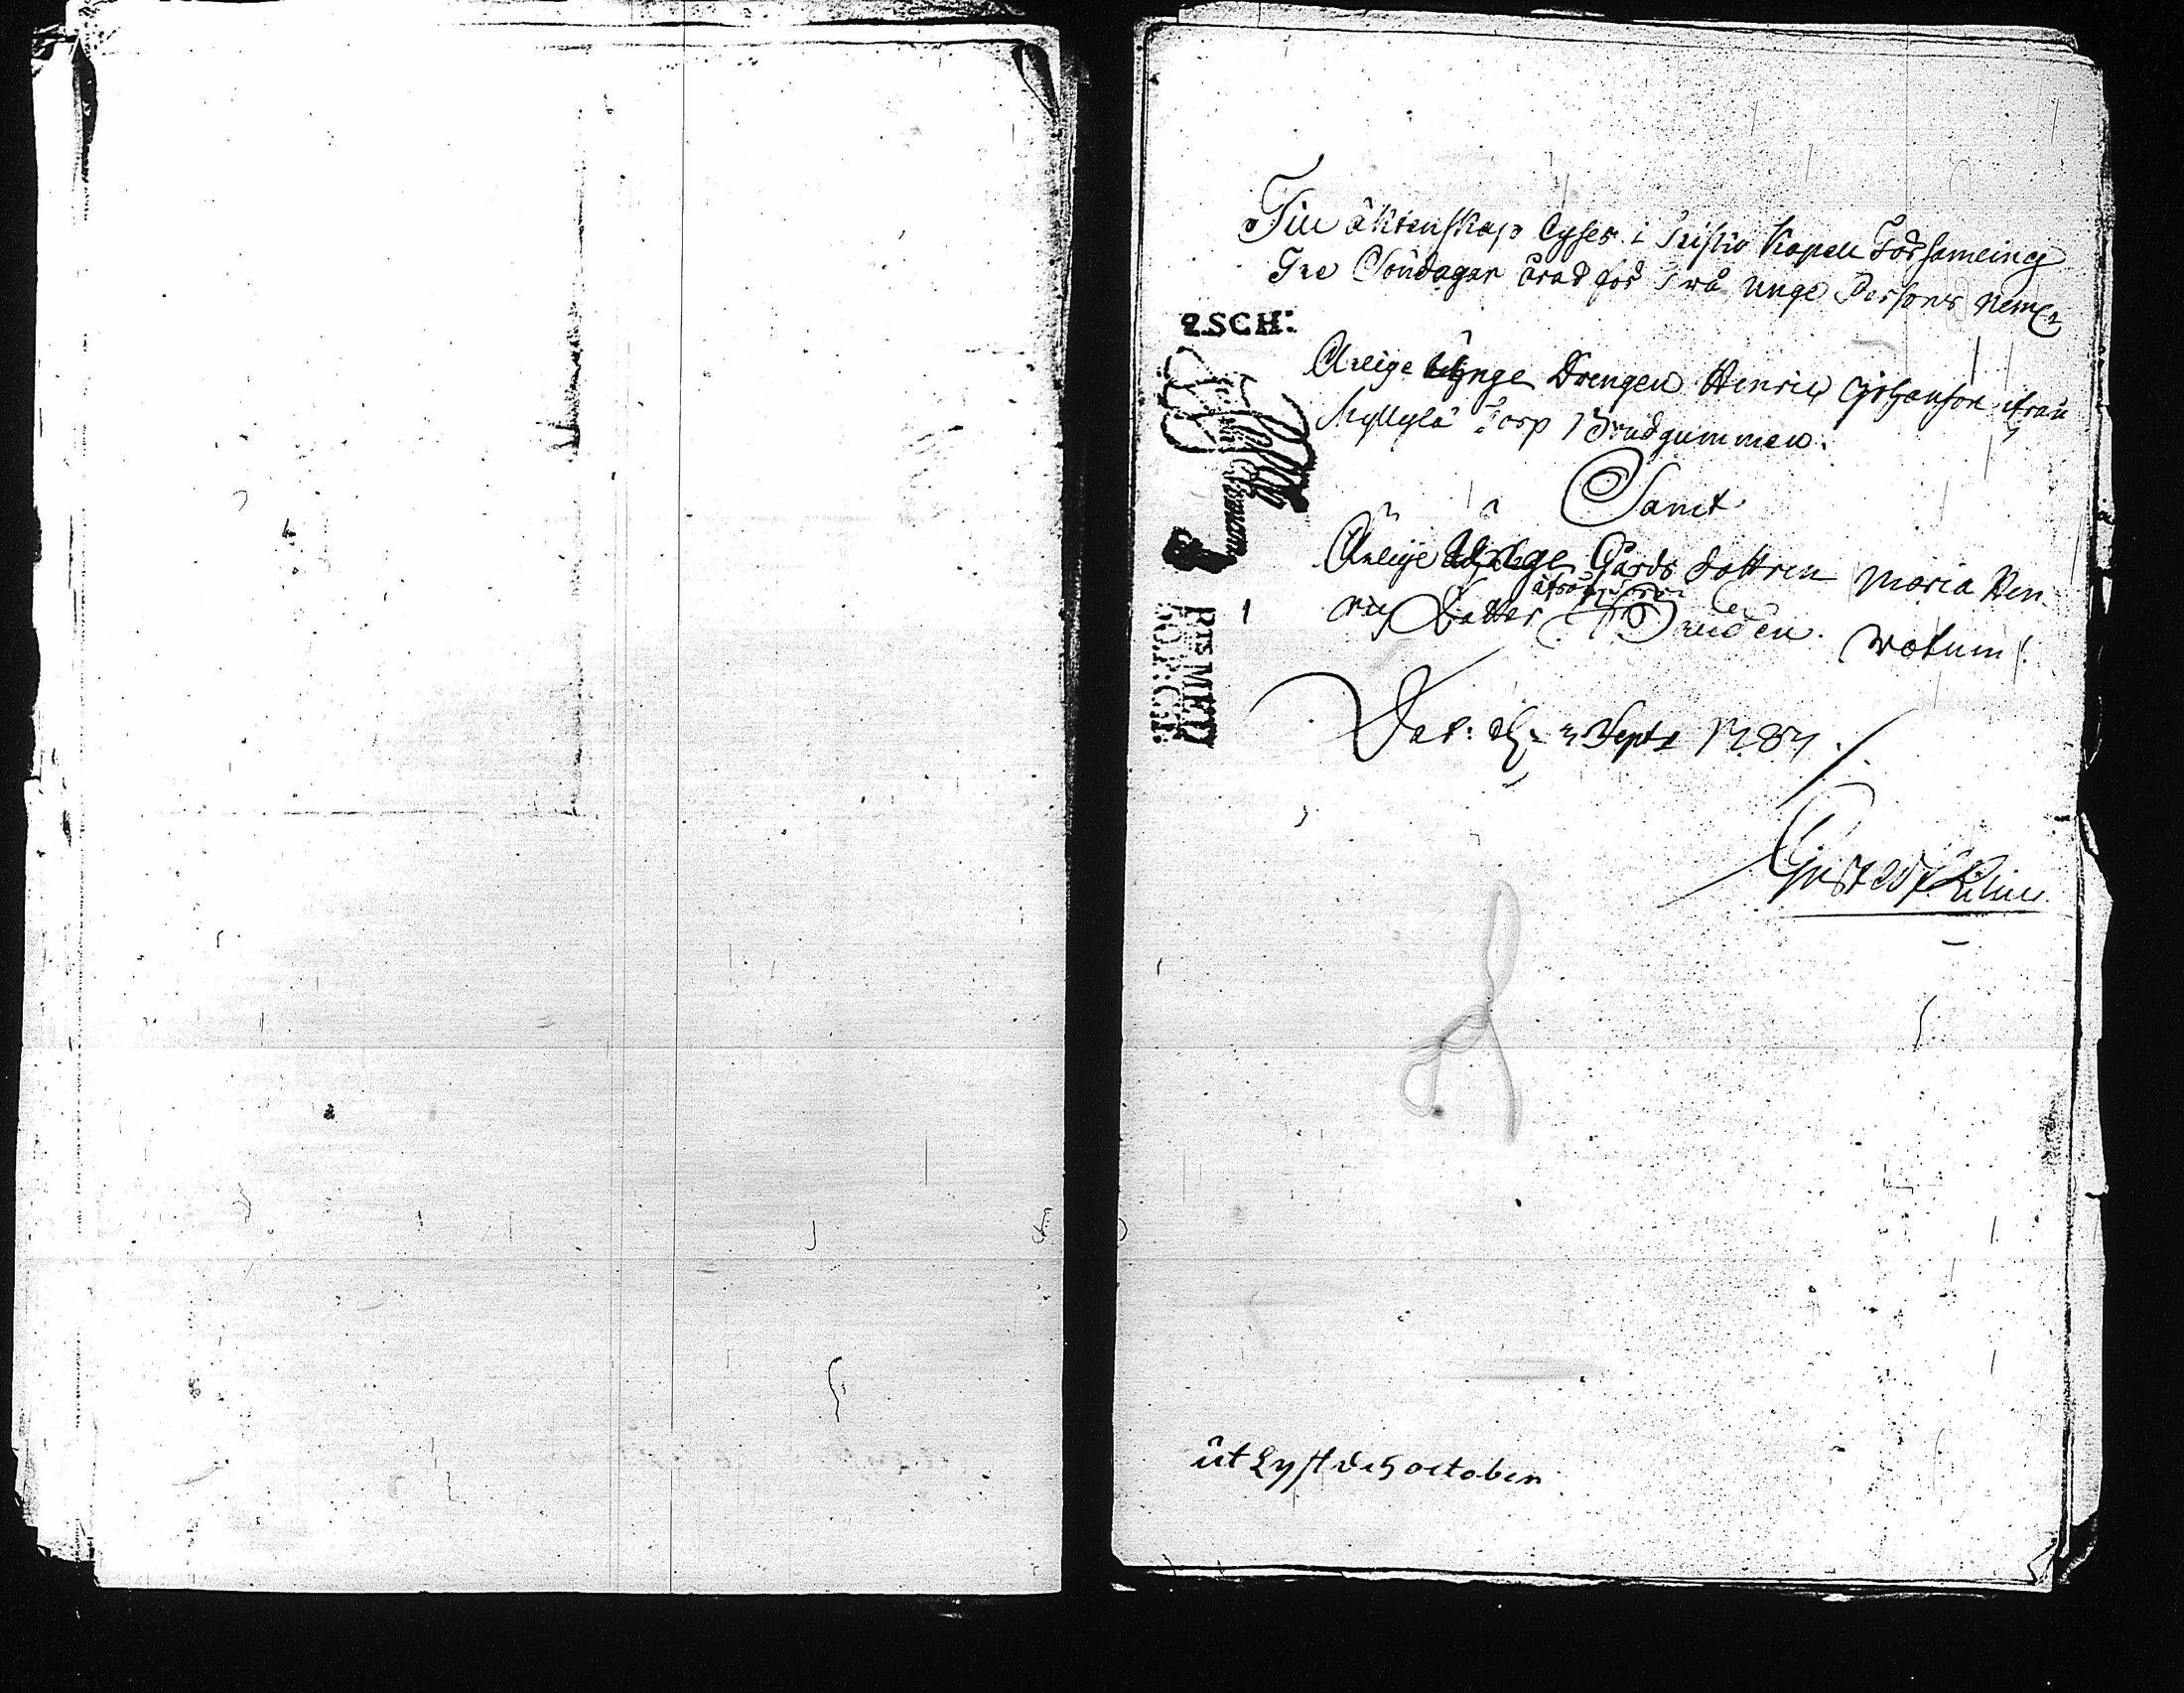 Till äktenskap lyses i Kapell Församling
Tre Söndagar å rad för Twå unge Persons neml
2.SCH:
Ärlige Unge Drengen Henric Johanson ifrån
Myllylä Torp Brudgummen.
Samt
Ärlige Unge Gårds dottren Maria Hen-
ric Dotter Bruden. votum!
Dat. d. 3 Sept 1787.
Gustaf
ut Lyst d 5 october